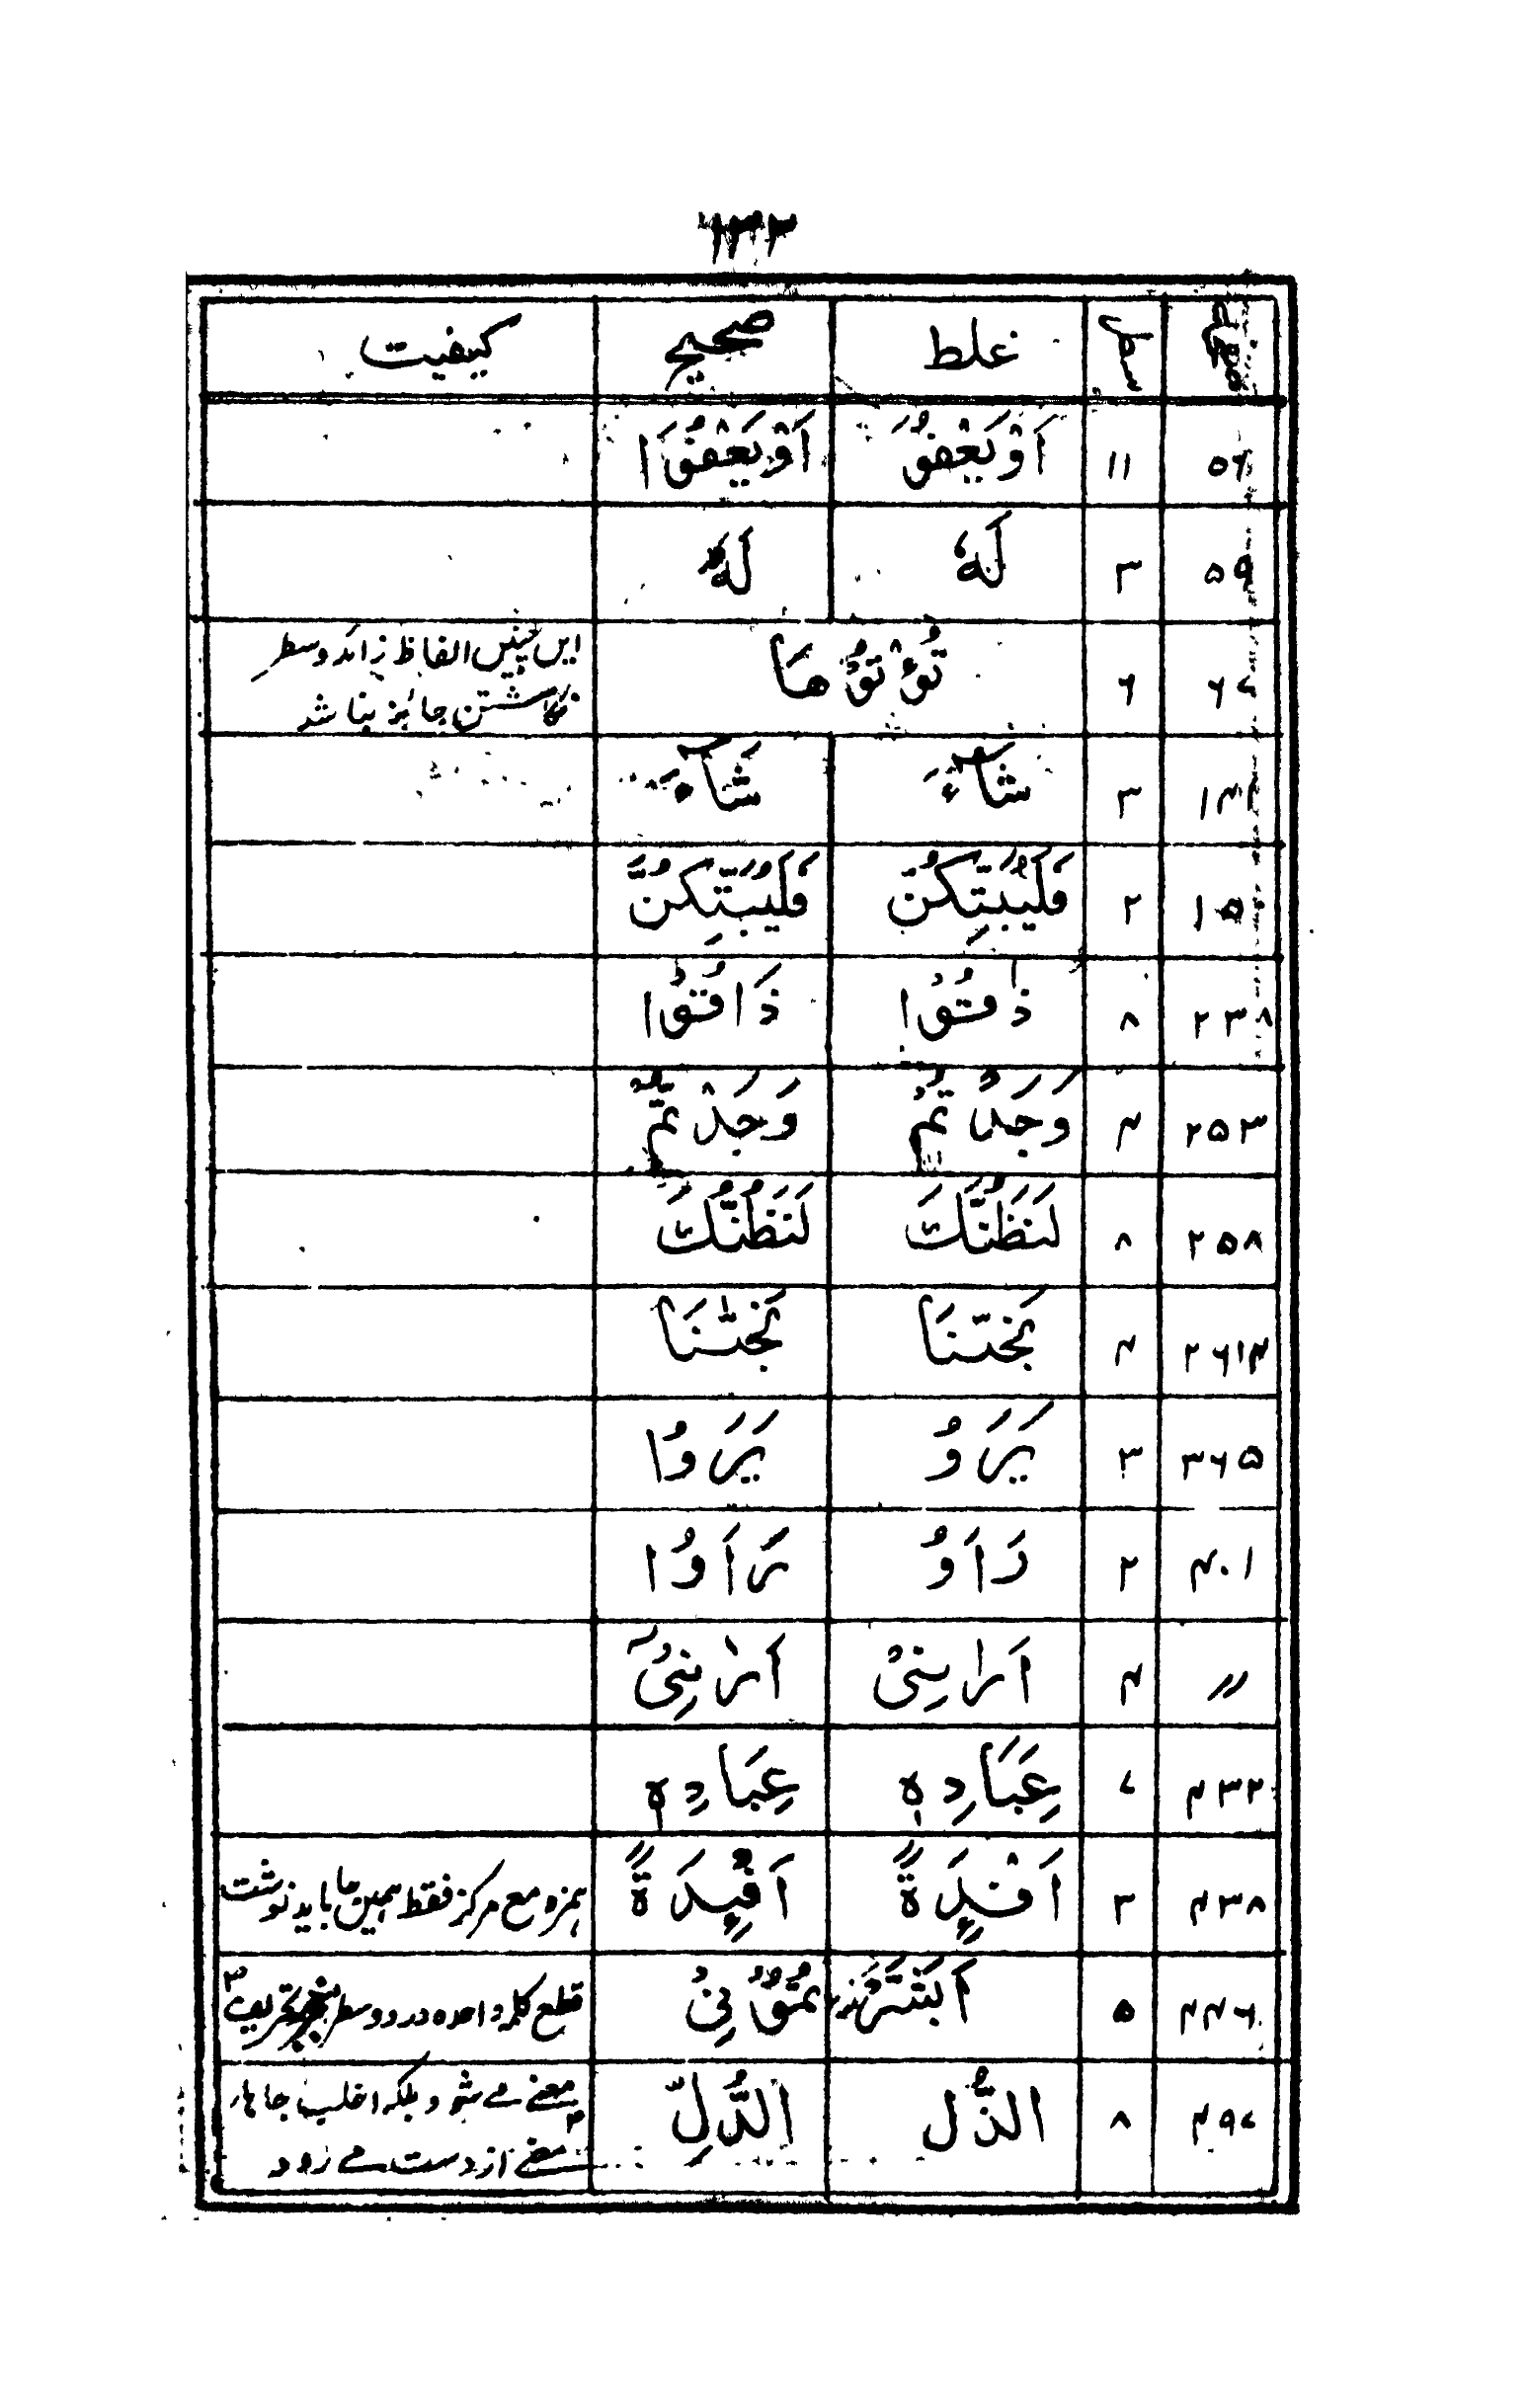 ۱۳۲
صفحه سطر غلط صحیح کیفیت
۵۶ ۱۱ اَوْ یَعْفُوَ اَوْ یَعْفُوَا
۵۹ ۳ لَهٗ لَهٗ
۶۷ ۶ تُؤْتُوْهَا این چنین الفاظ زائد و سطر
نگاشتن جائز نباشد
۳ شَآءَ شَآءَ
۱۵ ۲ فَلَیُبَتِّکُنَّ فَلَیُبَتِّکُنَّ
۲۳۸ ۸ ذٰقُوْا ذَاقُوْا
۲۵۳ ۴ وَجَدْتُمْ وَجَدْتُّمْ
۲۵۸ ۸ لَنَظُنُّکَ لَنَظُنُّکَ
۴
۳۶۵ ۳ یَرَوْ یَرَوْا
۴۰۱ ۲ رَاَوُ رَاَوُا
〃 ۴ اَرٰىنِیْ اَرٰىنِیْٓ
۴۳۲ ۷ عِبَادِهٖ عِبَادِهٖ
۴۳۸ ۳ اَفْـِٕدَةً اَفْـِٕدَةً همزه مع مرکز فقط همین جا باید نوشت
۴۴۶ ۵ قطع کلمه واحده در دو سطر تحریف
۴۹۷ ۸ الذُّلِ الذُّلِّ معنے مے شود بلکه اغلب جاها
معنے از دست مے رود